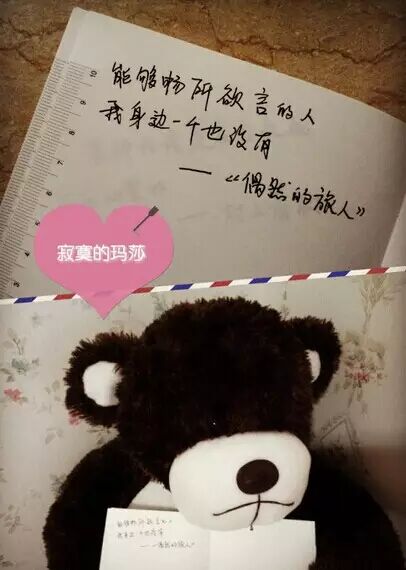 能够畅所欲言的人
我身边一个也没有
——《偶然的旅人》
寂寞的玛莎
能够畅所欲言的人
我身边一个也没有
——《偶然的旅人》
10
9
8
7
6
5
4
3